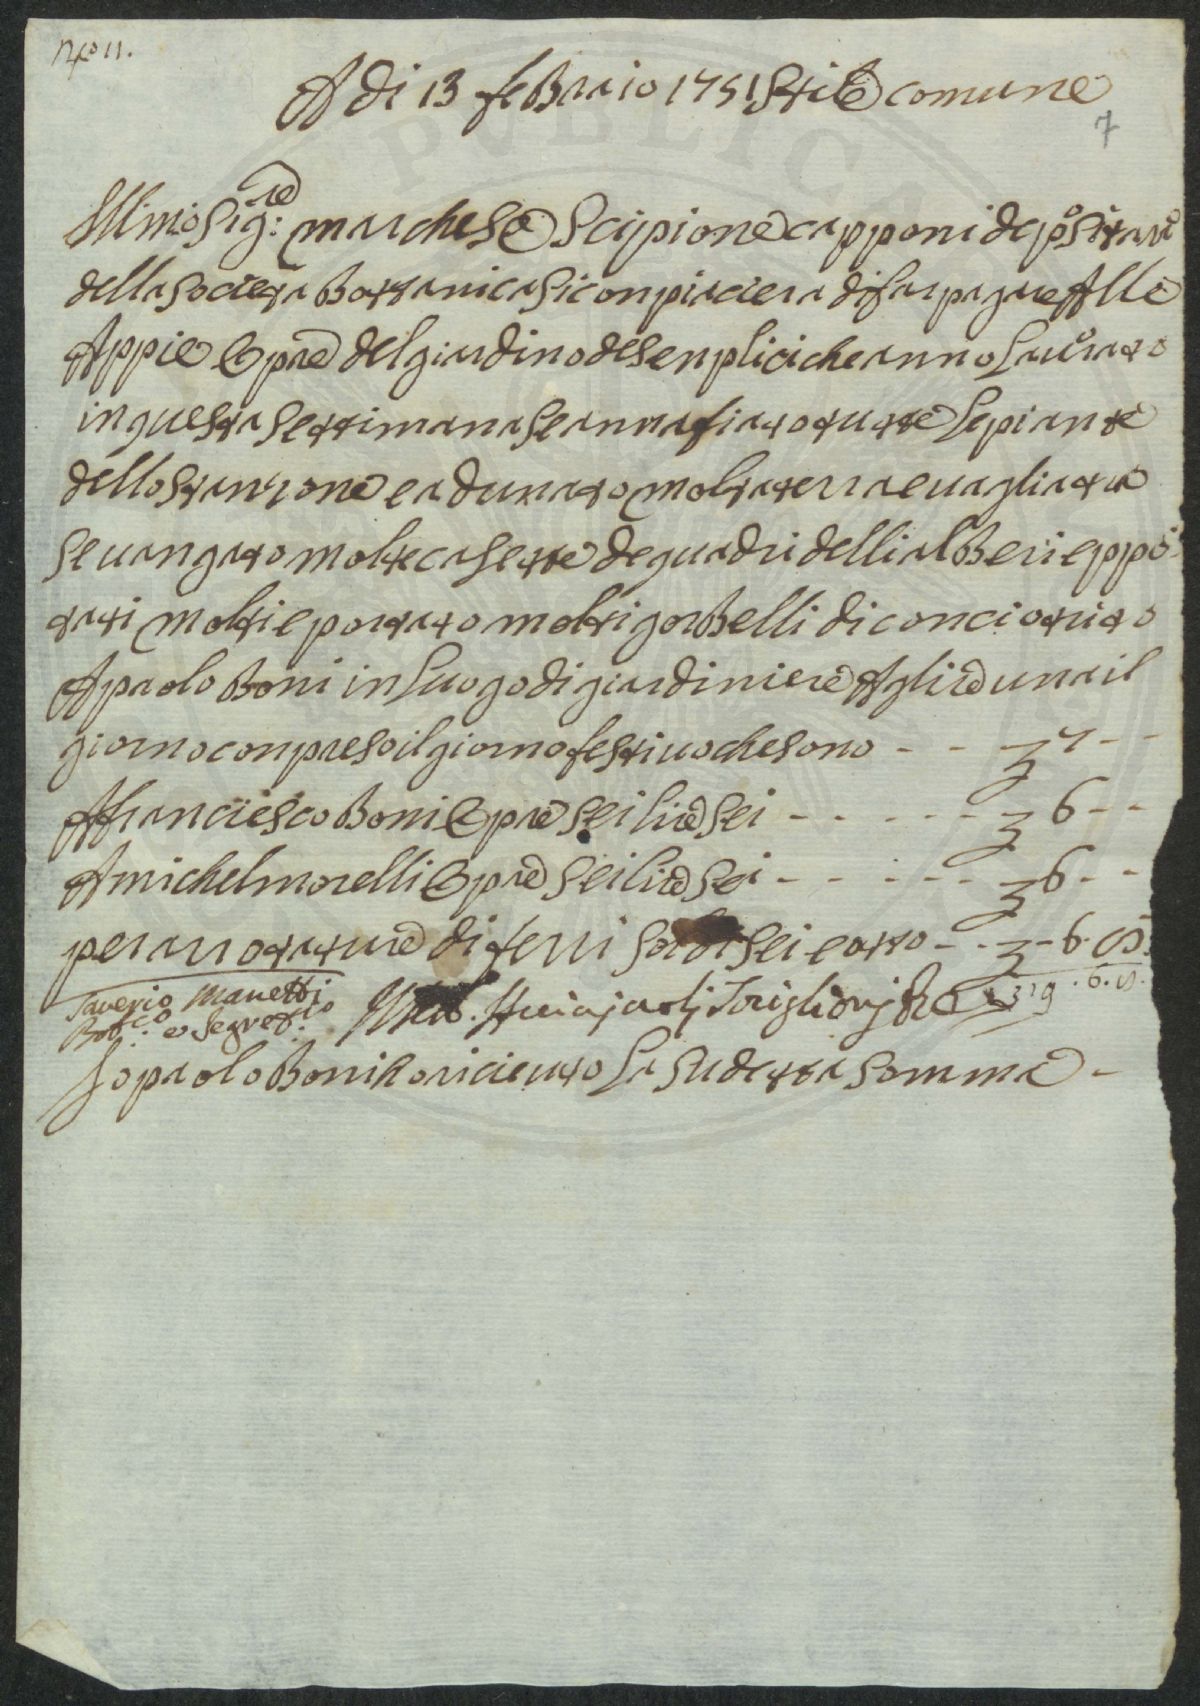 No 11.
A di 13 febraio 1751 Stile comune
7
Illmo Sig:re marchese Scipione capponi depositario
della societa Bottanica si conpiaciera di far pagare Alle
Appie Opre del giardino de senplici che anno Lauorato
in questa settimana se annafiato tutte le piante
dello stanzone e adunato molta terra e uagliata
se uangato molte casette de quadri delli alberi eppo
tati molti e portato molti gorbelli di concio trito
A paolo Boni in Luogo di giardiniere A lire una il
giorno conpreso il giorno festiuo che sono - - 7 - -
A franciesco Boni Opre sei lire sei - - - - - - 6 - -
A michel morelli Opre sei lire sei - - - - - - 6 - -
per arrotature di ferri soldi sei e otto - - - 6. 8
Saverio Manetti
Segret:rio
19. 6. 8.
Io paolo Boni o riceuto La sudetta somma -